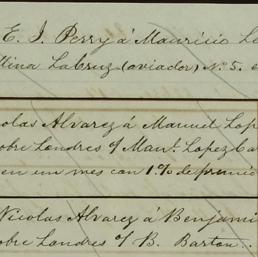 E. J. Perry á Mauricio La
ttina Labruz (aviador) Nº 5. e
colas Alvarez á Manuel Lop
obre Londres o/ Manl. Lopez Ca
en un mes con 1% de premio
Nicolas Alvarez á Benjami
obre Londres o/ B. Barton.